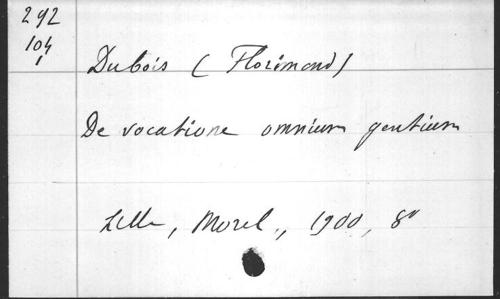 292
104
1
Dubois (Florimond)
De vocatione omnium gentium
Lille, Morel., 1900, 8º